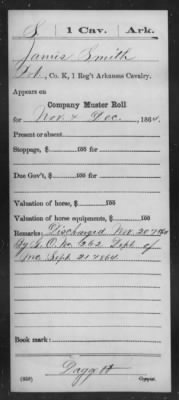 S | 1 Cav. | Ark.
James Smith
Co. K, 1 Reg't Arkansas Cavalry.
Appears on
Company Muster Roll
for Nov. & Dec., 1864.
Present or absent
Stoppage, $ 100 for
Due Gov't, $ 100 for
Valuation of horse, $ 100
Valuation of horse equipments, $ 100
Remarks: Discharged Nov. 20 1864
By S. O. No. 262 Dept. of
Mo. Sept. 21 1864.
Book mark:
Daggett
(858) Copyist.